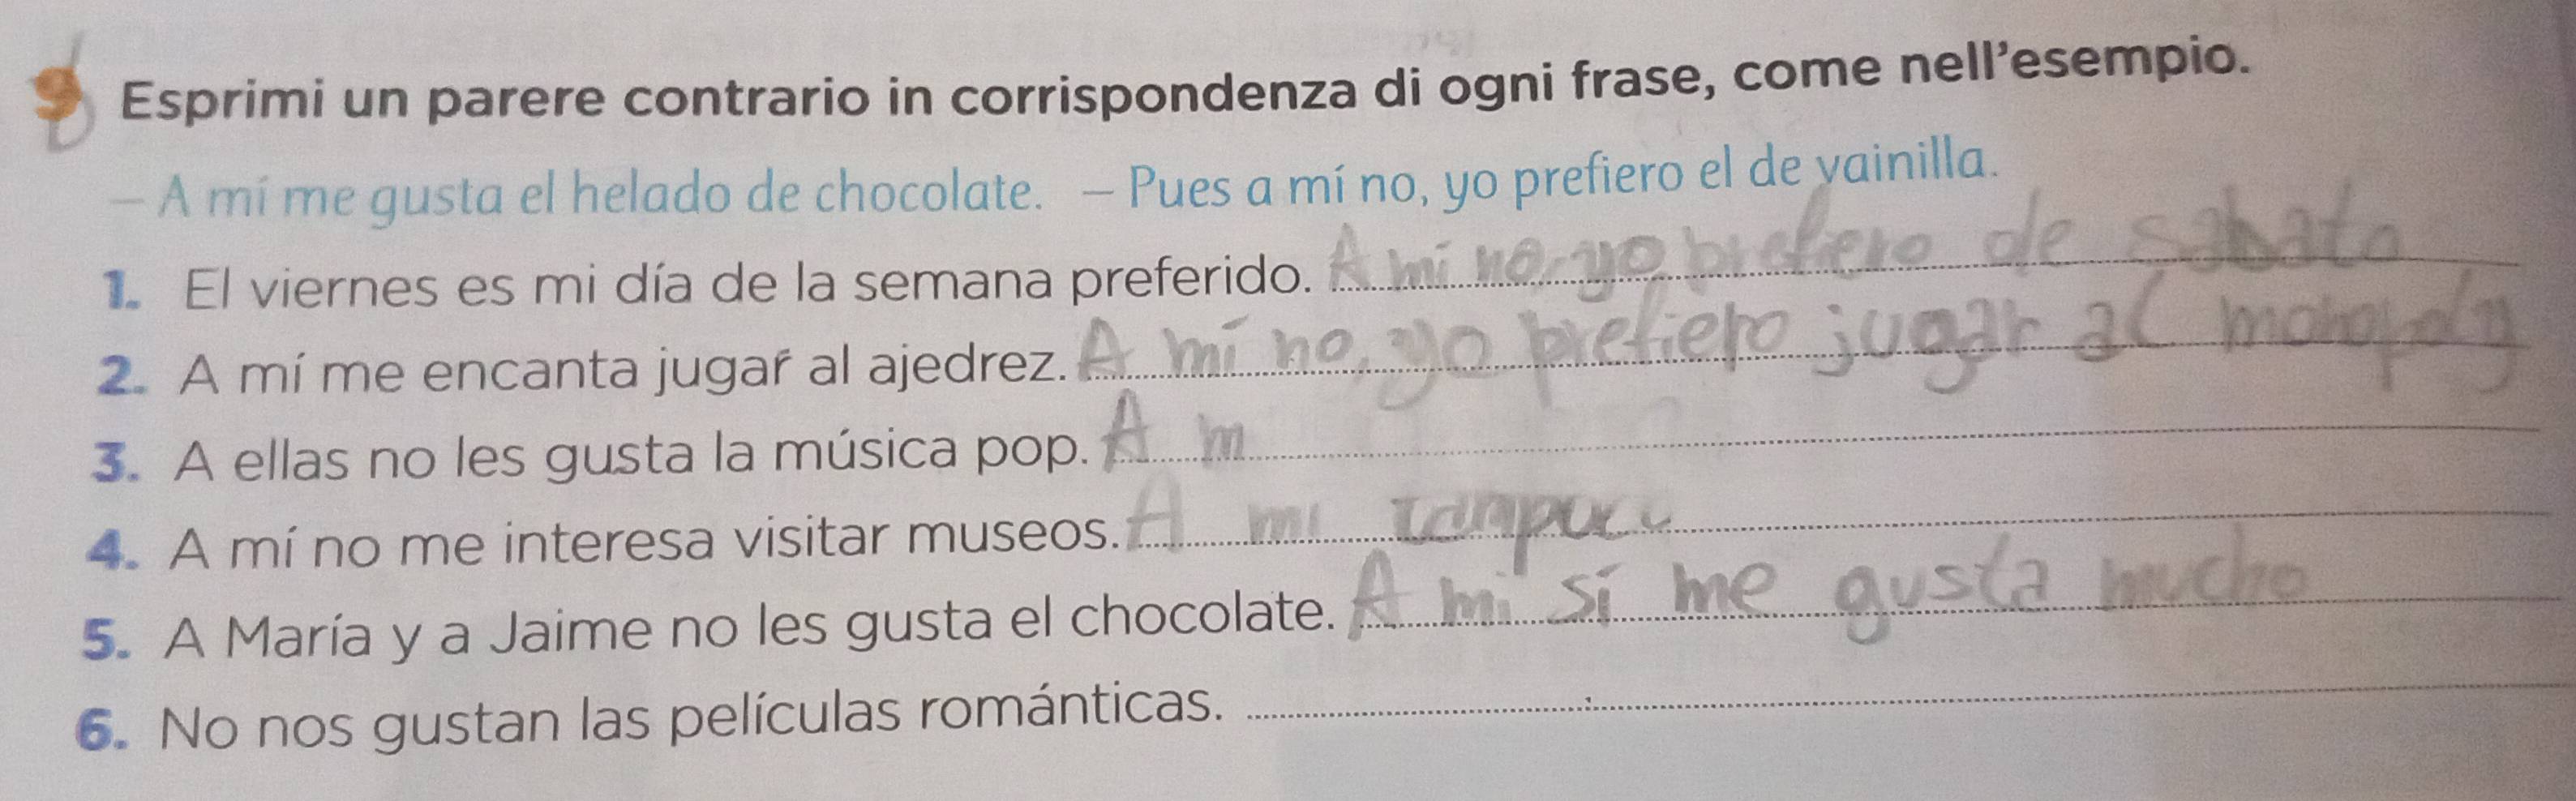 9 Esprimi un parere contrario in corrispondenza di ogni frase, come nell'esempio.
— A mí me gusta el helado de chocolate. — Pues a mí no, yo prefiero el de vainilla.
1. El viernes es mi día de la semana preferido. A mí no, yo prefiero de sabato
2. A mí me encanta jugar al ajedrez. A mí no, yo prefiero jugar al monopoly
3. A ellas no les gusta la música pop. A m
4. A mí no me interesa visitar museos. A mi tampoco
5. A María y a Jaime no les gusta el chocolate. A mi sí me gusta mucho
6. No nos gustan las películas románticas.